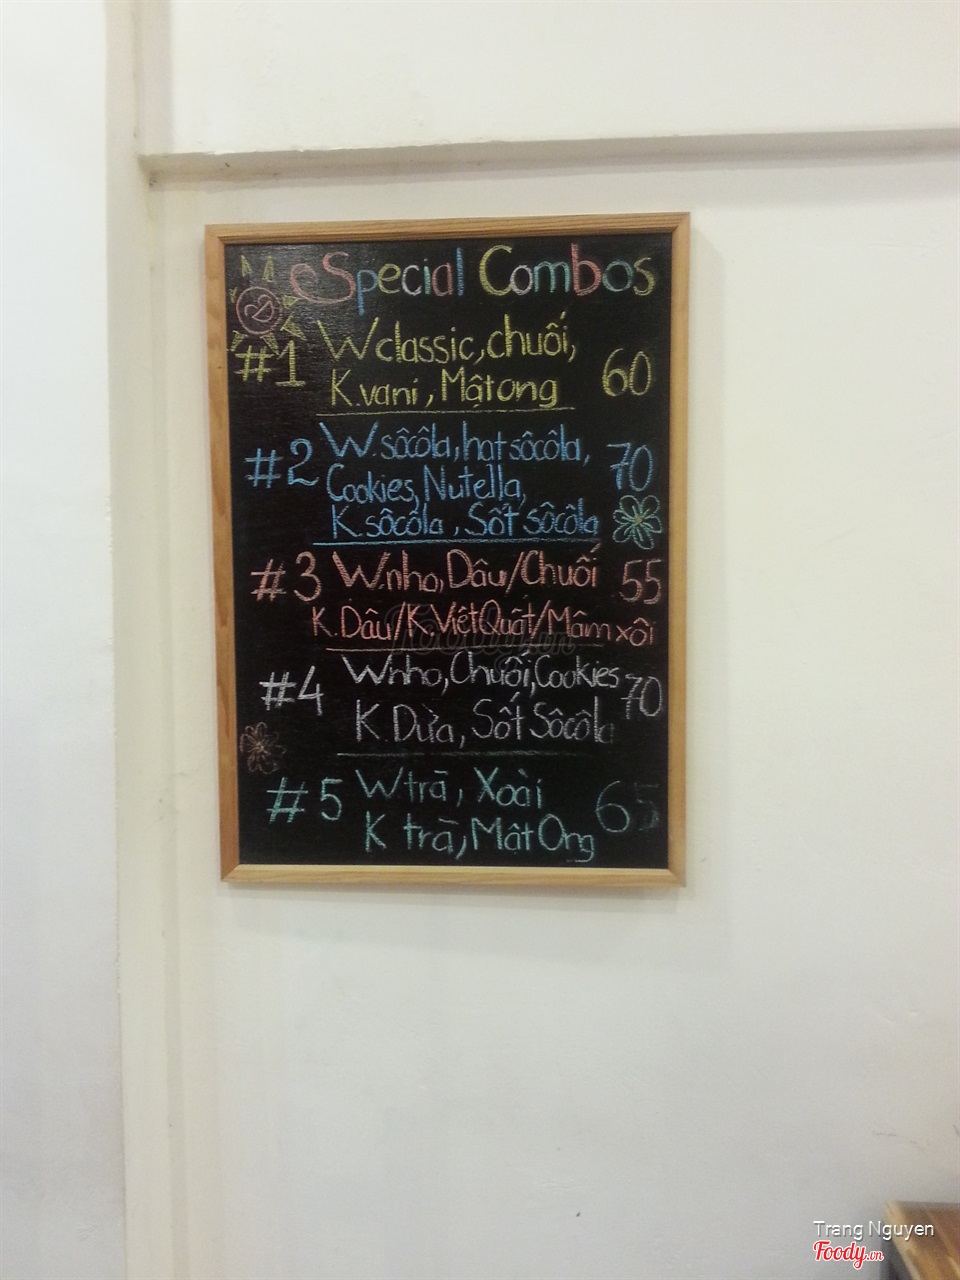 Special Combos
#1 W classic, chuối, 60
K.vani, Mật ong
#2 W.sôcôla, hạt sôcôla, 70
Cookies, Nutella,
K.sôcôla, Sốt sôcôla
#3 W.nho, Dâu/Chuối 55
K.Dâu/K.Việt Quất/Mâm xôi
#4 W nho, Chuối, Cookies 70
K.Dừa, Sốt Sôcôla
#5 W trà, Xoài 65
K trà, Mật Ong
Foody.vn
Trang Nguyen
Foody.vn